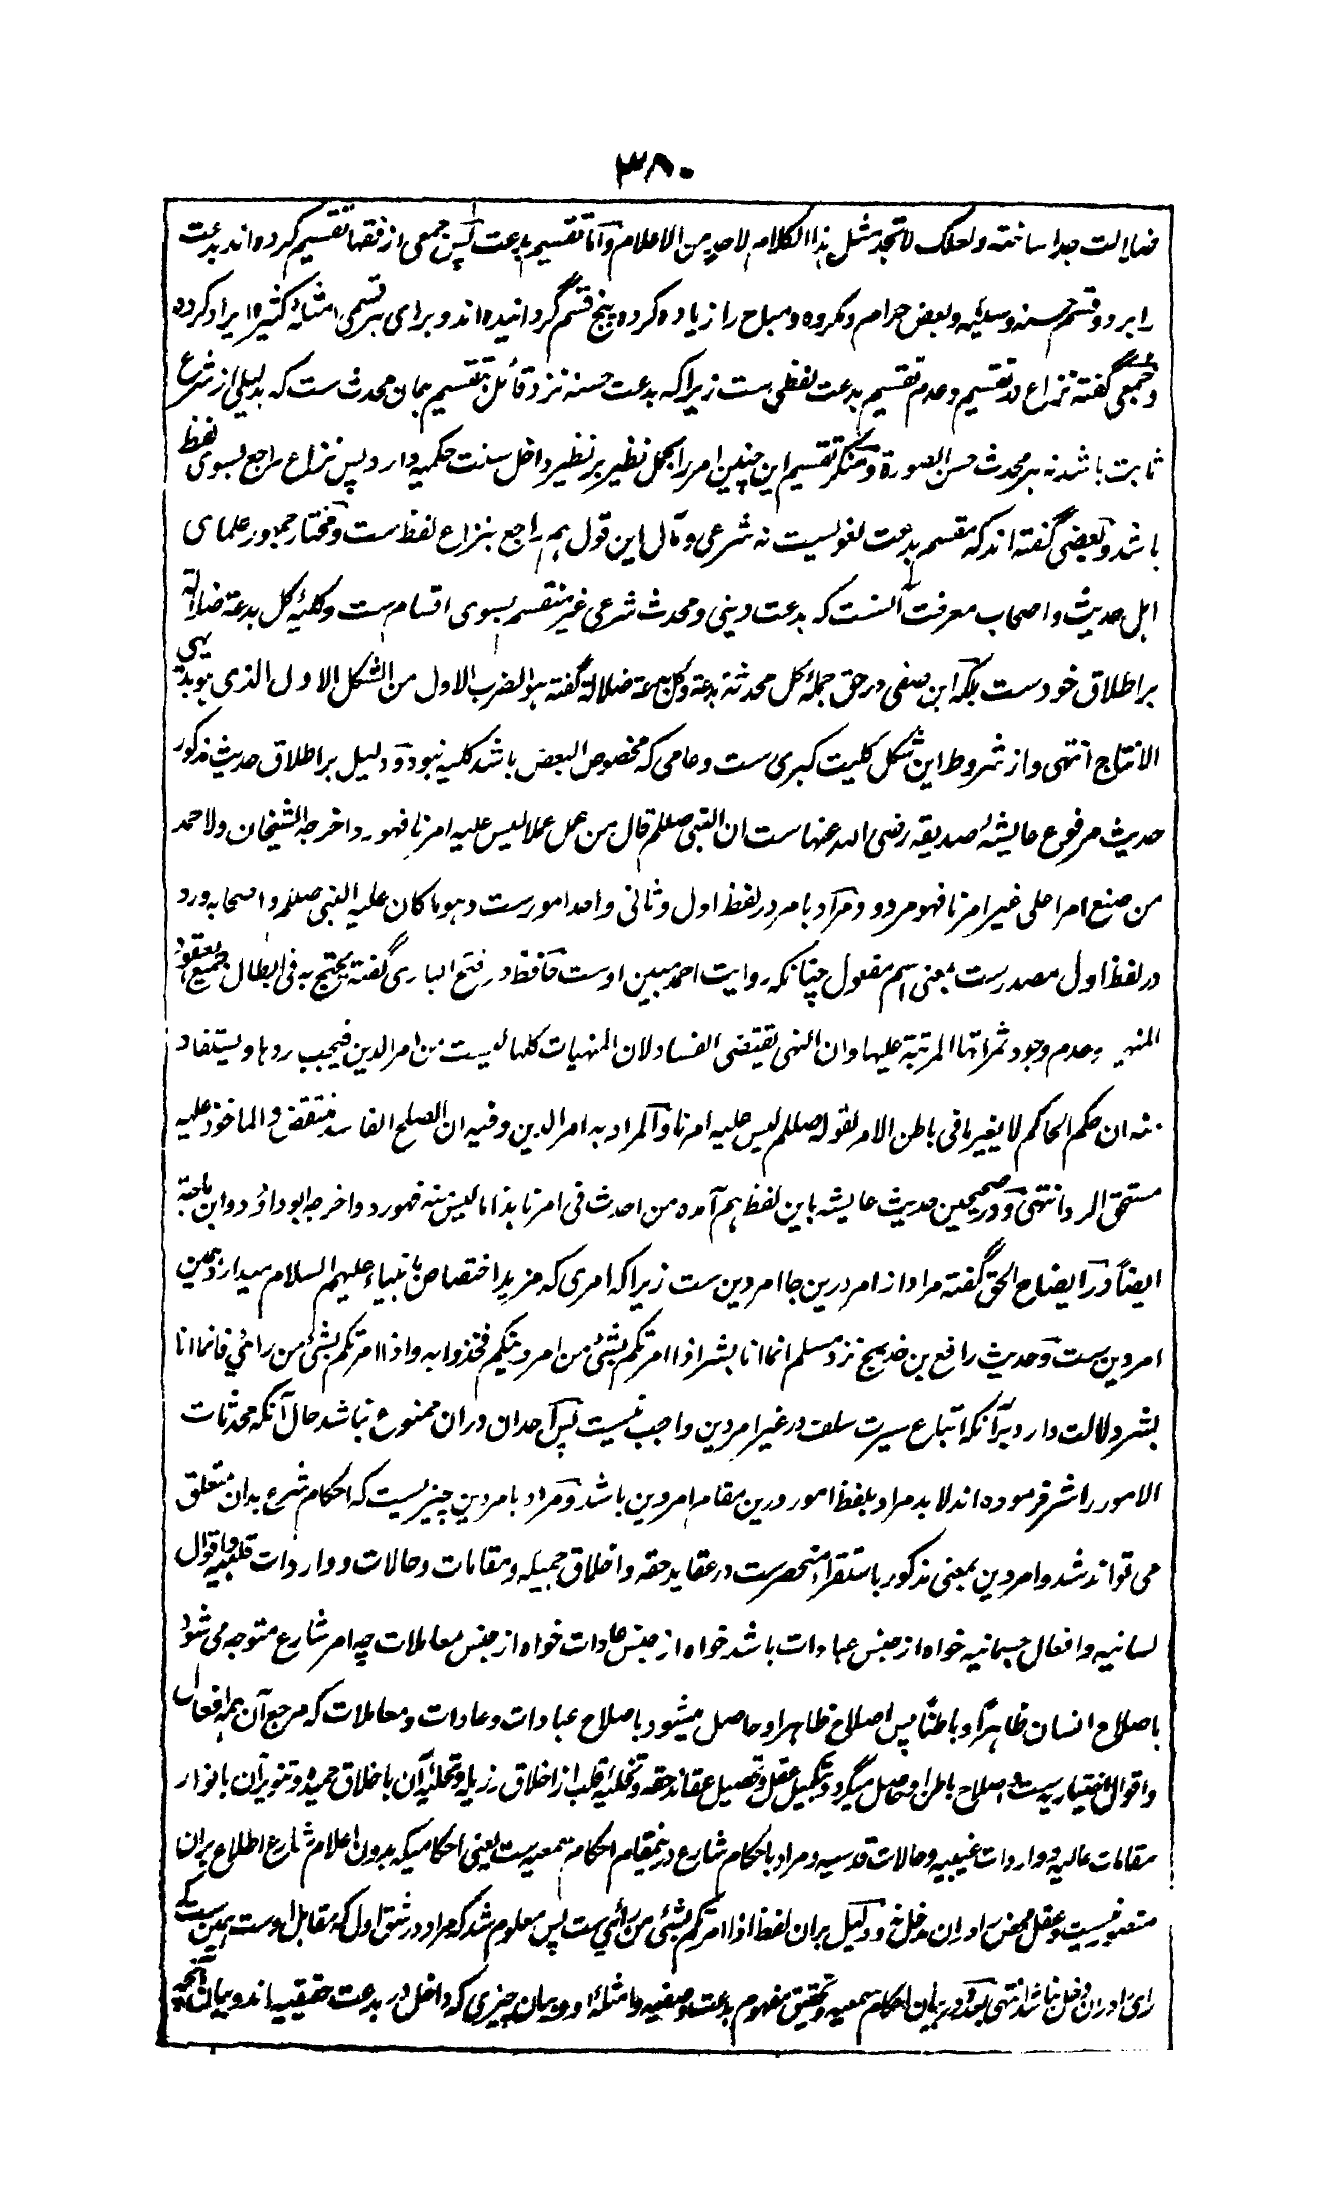 ۳۸۰
ضلالت جدا ساخته ولعلک لا تجد مثل ہذا الکلام لاحد من الاعلام و اما تقسیم بدعت پس جمعی از فقہا تقسیم کردہ اند بدعت
را بر دو قسم حسنہ و سیئہ و بعض حرام و مکروہ و مباح را زیادہ کردہ پنج قسم گردانیدہ اند و برای ہر قسمی امثلۂ کثیرہ ایراد کردہ
و جمعی گفتہ نزاع در تقسیم و عدم تقسیم بدعت لفظی ست زیرا کہ بدعت حسنہ نزد قائل بتقسیم ہمان محدث ست کہ بدلیلی از شرع
ثابت باشد نہ ہر محدث حسن الصورۃ و منکر تقسیم این چنین امر را بحمل نظیر بر نظیر داخل سنت حکمیہ دارد پس نزاع راجع بسوی لفظ
باشد و بعضی گفتہ اند کہ مقسم بدعت لغویست نہ شرعی و مآل این قول ہم راجع بنزاع لفظ ست و مختار جمہور علمای
اہل حدیث و اصحاب معرفت آنست کہ بدعت دینی و محدث شرعی غیر منقسم بسوی اقسام ست و کلیۂ کل بدعة ضلالة
بر اطلاق خود ست بلکہ ابن صفی در حق جملۂ کل محدثة بدعة وکل بدعة ضلالة گفتہ ہو الضرب الاول من الشکل الاول الذی ہو بدیہی
الانتاج انتہی و از شروط این شکل کلیت کبری ست و عامی کہ مخصوص البعض باشد کلیہ نبود و دلیل بر اطلاق حدیث مذکور
حدیث مرفوع عایشۂ صدیقہ رضی اللہ عنہا ست ان النبی صللم قال من عمل عملا لیس علیہ امرنا فہو رد اخرجہ الشیخان ولاحمد
من صنع امرا علی غیر امرنا فہو مردود و مراد بامر در لفظ اول و ثانی واحد امورست و ہو ما کان علیہ النبی صللم واصحابہ ورد
در لفظ اول مصدرست بمعنی اسم مفعول چنانکہ روایت احمد مبین اوست حافظ در فتح الباری گفتہ یحتج بہ فی ابطال جمیع العقود
المنہیۃ وعدم وجود ثمراتہا المرتبۃ علیہا وان النہی یقتضی الفساد لان المنہیات کلہا لیست من امر الدین فیجب ردہا ویستفاد
منہ ان حکم الحاکم لا یغیر ما فی باطن الامر لقولہ صللم لیس علیہ امرنا والمراد بہ امر الدین وفیہ ان الصلح الفاسد منتقض والماخوذ علیہ
مستحق الرد انتہی و در صحیحین حدیث عایشہ باین لفظ ہم آمدہ من احدث فی امرنا ہذا ما لیس منہ فہو رد واخرجہ ابو داؤد وابن ماجۃ
ایضاً و در ایضاح الحق گفتہ مراد از امر درین جا امر دین ست زیرا کہ امری کہ مزید اختصاص بانبیاء علیہم السلام میدارد ہمین
امر دین ست و حدیث رافع بن خدیج نزد مسلم انما انا بشر اذا امرتکم بشیٔ من امر دینکم فخذوا بہ واذا امرتکم بشیٔ من رائی فانما انا
بشر دلالت دارد برآنکہ اتباع سیرت سلف در غیر امر دین واجب نیست پس احداث دران ممنوع نباشد حال آنکہ محدثات
الامور را شر فرمودہ اند لابد مراد بلفظ امور درین مقام امر دین باشد و مراد بامر دین چیزیست کہ احکام شرع بدان متعلق
می تواند شد و امر دین بمعنی مذکور باستقراء منحصرست در عقاید حقہ و اخلاق جمیلہ و مقامات و حالات و واردات قلبیہ و اقوال
لسانیہ و افعال جسمانیہ خواہ از جنس عبادات باشد خواہ از جنس عادات خواہ از جنس معاملات چہ امر شارع متوجہ می شود
باصلاح انسان ظاہراً و باطناً پس اصلاح ظاہر او حاصل میشود باصلاح عبادات و عادات و معاملات کہ مرجع آن ہمہ افعال
و اقوال اختیاریہ ست و اصلاح باطن او حاصل میگردد بتکمیل عقل و تحصیل عقائد حقہ و تخلیۂ قلب از اخلاق رزیلہ و تحلیۂ آن باخلاق حمیدہ و تنویر آن بانوار
مقامات عالیہ و واردات غیبیہ و حالات قدسیہ و مراد باحکام شارع درینمقام احکام سمعیہ ست یعنی احکامیکہ بدون اعلام شارع اطلاع بران
متصور نیست و عقل محض را دران دخل نہ و دلیل بران لفظ اذا امرتکم بشئی من رائی ست پس معلوم شد کہ مراد در شق اول کہ مقابل اوست ہمین ست کہ
رای را دران دخل نباشد انتہی بعدہ در بیان احکام سمعیہ و تحقیق مفہوم بدعت وصفیہ و امثلۂ او و بیان چیزی کہ داخل در بدعت حقیقیہ اند و بیان آنچہ